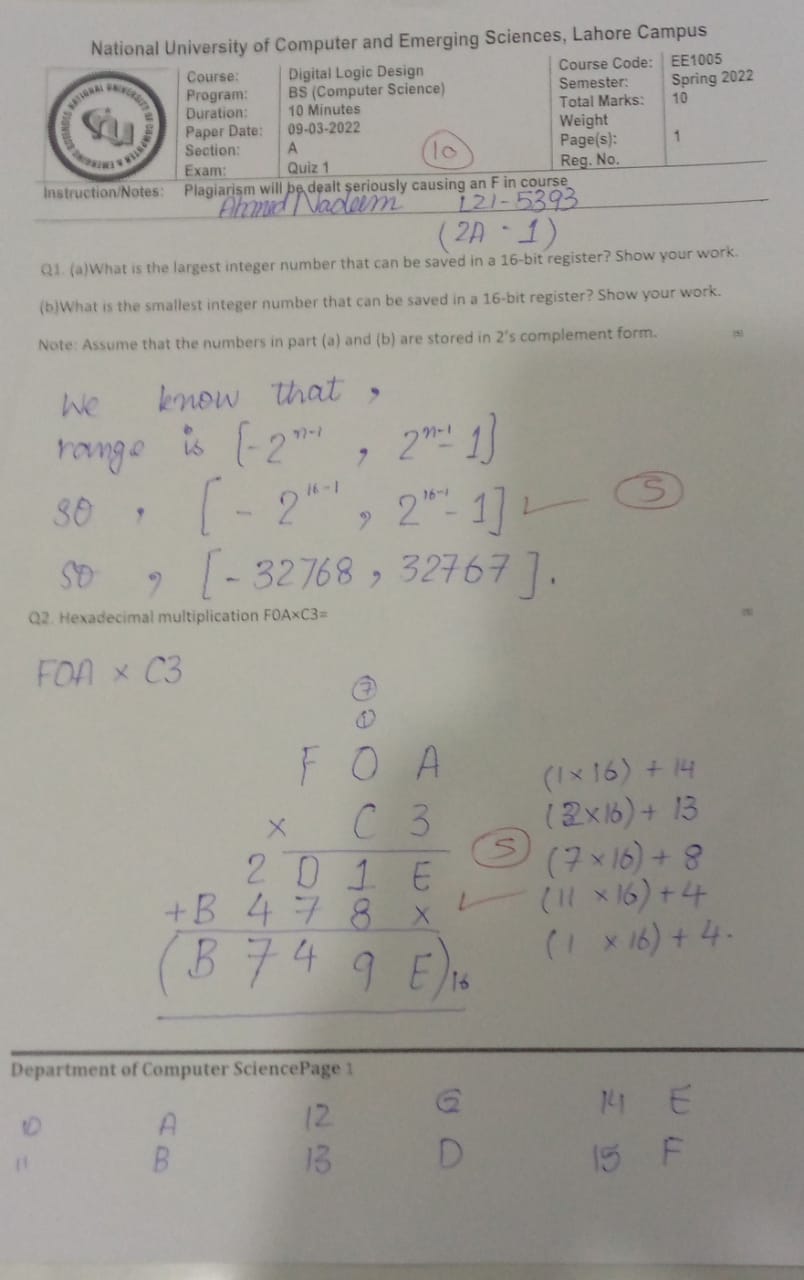 National University of Computer and Emerging Sciences, Lahore Campus
Course: Digital Logic Design Course Code: EE1005
Program: BS (Computer Science) Semester: Spring 2022
Duration: 10 Minutes Total Marks: 10
Paper Date: 09-03-2022 Weight
Section: A Page(s): 1
Exam: Quiz 1 Reg. No.
10
Instruction/Notes: Plagiarism will be dealt seriously causing an F in course
Ahmed Nadeem L21-5393
(2A - 1)
Q1. (a)What is the largest integer number that can be saved in a 16-bit register? Show your work.
(b)What is the smallest integer number that can be saved in a 16-bit register? Show your work.
Note: Assume that the numbers in part (a) and (b) are stored in 2's complement form.
We know that ,
range is [-2^(n-1) , 2^(n-1) - 1]
so , [-2^(16-1) , 2^(16-1) - 1] ✓ 5
so , [-32768 , 32767].
Q2. Hexadecimal multiplication F0A×C3=
F0A × C3
7
1
F 0 A (1×16) + 14
× C 3 (2×16) + 13
2 D 1 E 5 (7×16) + 8
+B 4 7 8 × ✓ (11 ×16) + 4
(B 7 4 9 E)16 (1 ×16) + 4.
Department of Computer SciencePage 1
10 A 12 C 14 E
11 B 13 D 15 F